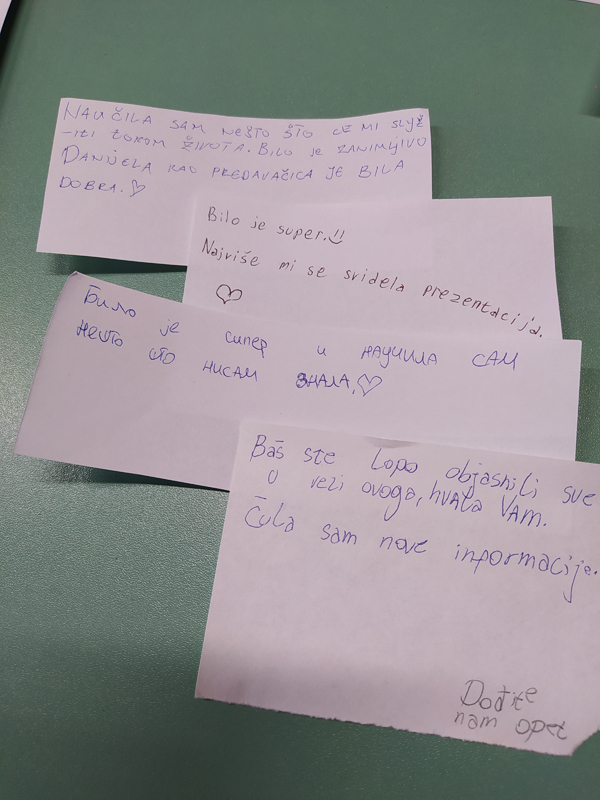 NAUČILA SAM NEŠTO ŠTO ĆE MI SLUŽ
-ITI TOKOM ŽIVOTA. BILO JE ZANIMLJIVO
DANIJELA KAO PREDAVAČICA JE BILA
DOBRA. ♡
Bilo je super.!!
Najviše mi se svidela prezentacija.
♡
Било је супер и научила САМ
нешто што нисам знала, ♡
Baš ste lopo objasnili sve
u vezi ovoga, hvala VAM.
Čula sam nove informacije.
Dođite
nam opet